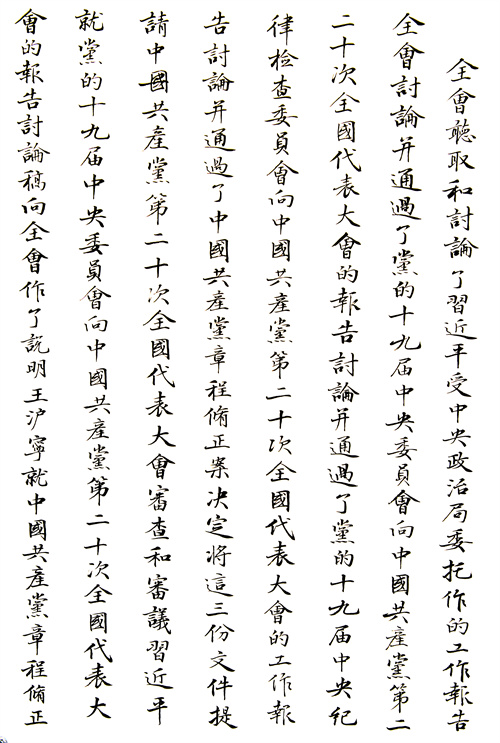 全會聽取和討論了習近平受中央政治局委托作的工作報告
全會討論并通過了黨的十九届中央委員會向中國共產黨第二
二十次全國代表大會的報告討論并通過了黨的十九届中央紀
律檢查委員會向中國共產黨第二十次全國代表大會的工作報
告討論并通過了中國共產黨章程脩正案决定將這三份文件提
請中國共產黨第二十次全國代表大會審查和審議習近平
就黨的十九届中央委員會向中國共產黨第二十次全國代表大
會的報告討論稿向全會作了説明王沪寧就中國共產黨章程脩正